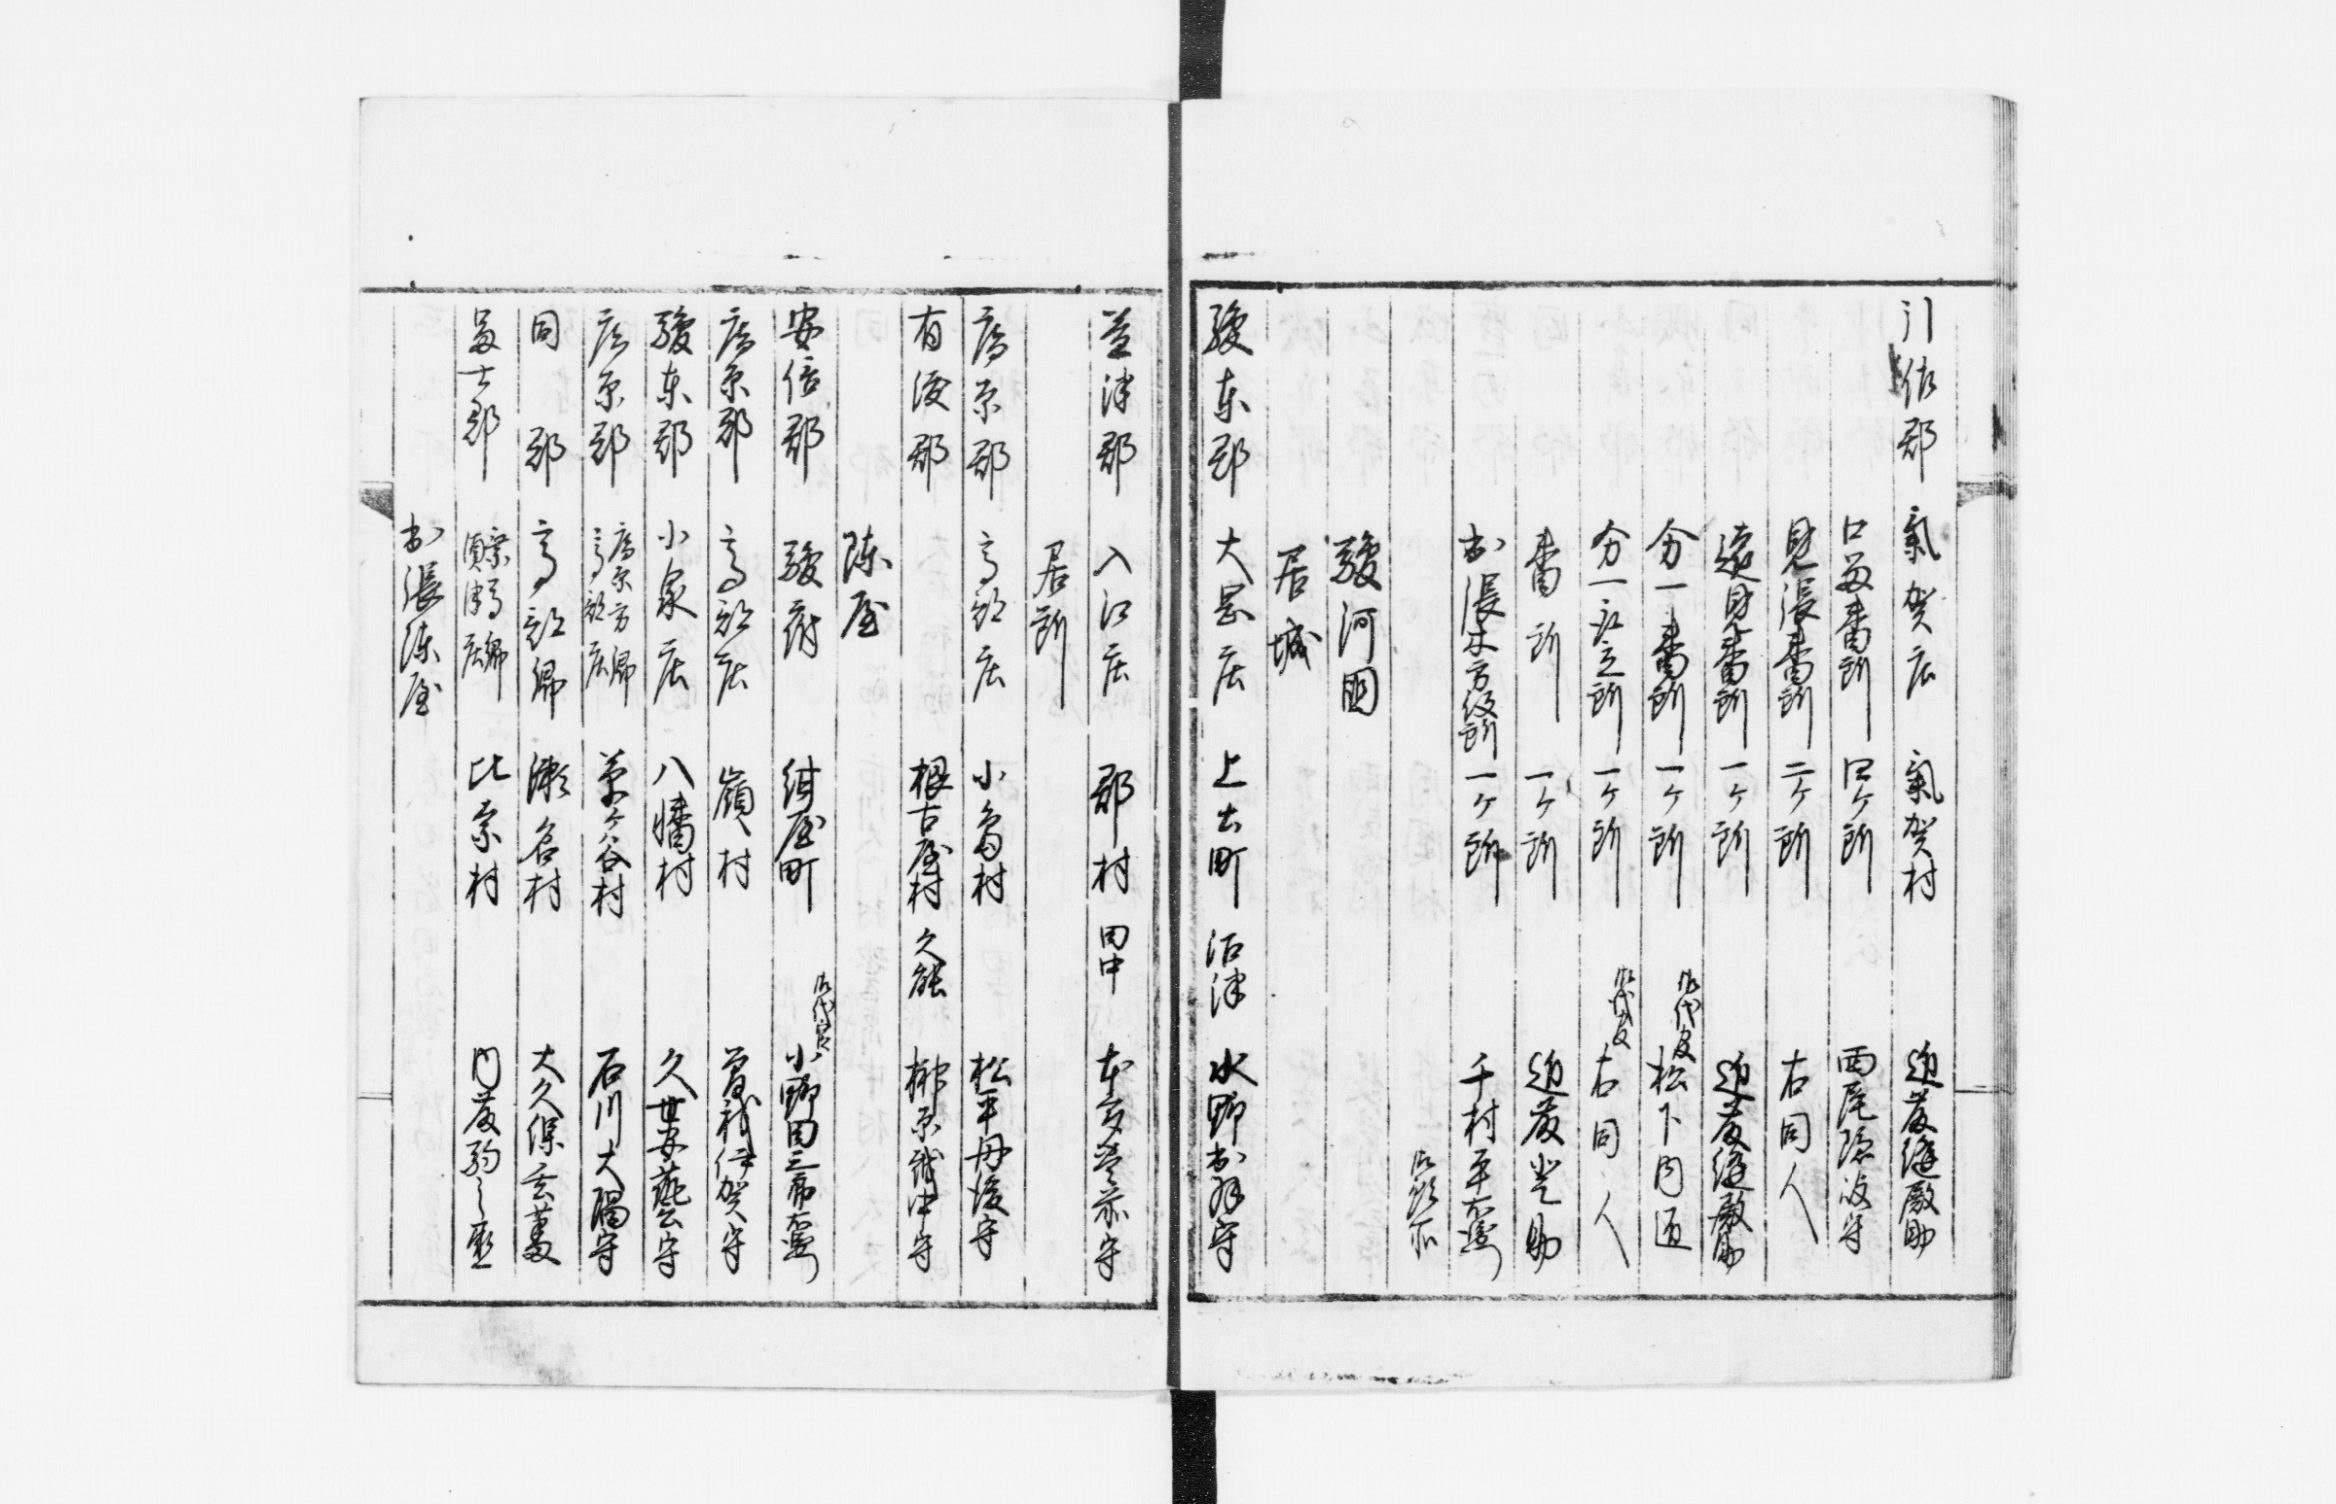 引佐郡 氣賀庄 氣賀村 近藤縫殿助
口留番所 四ケ所 西尾隠岐守
見張番所 二ケ所 右同人
遠見番所 一ケ所 近藤縫殿助
分一番所 一ケ所 松下内匠
分一取立所 一ケ所 右同人
番所 一ケ所 近藤登助
出張木方役所 一ケ所 千村平右衛門
駿河國
居城
駿東郡 大岡庄 上土町 沼津 水野出羽守
益津郡 入江庄 郡村 田中 本多豊前守
居所
庵原郡 高部庄 小島村 松平丹後守
有渡郡 根古屋村 久能 榊原越中守
陣屋
安倍郡 駿府 紺屋町 御代官 小野田三郎右衛門
庵原郡 高部庄 嶺村 曽我伊賀守
駿東郡 小泉庄 八幡村 久世安藝守
庵原郡 庵原方郷 高部庄 草ケ谷村 石川大隅守
同郡 高部郷 瀬名村 大久保玄蕃
冨士郡 比奈村 内藤駒之丞
出張陣屋